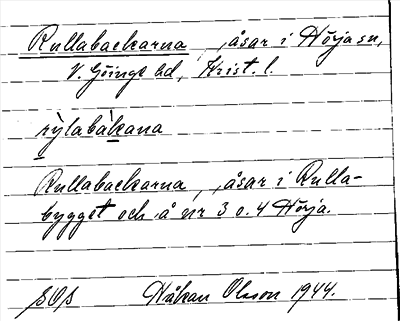 Rullabackarna, åsar i Hörja sn,
V. Göinge hd, Krist. l.
rùlabàkana
Rullabackarna, åsar i Rulla-
bygget och å nr 3 o. 4 Hörja.
Håkan Olsson 1944.